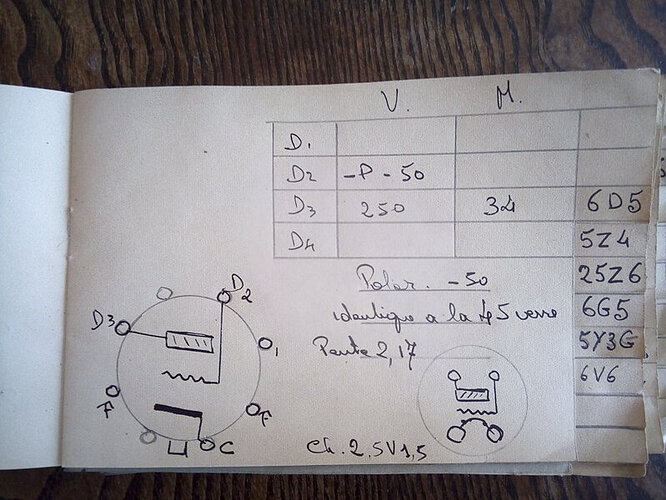 V. M.
D1
D2 -P - 50
D3 250 34
D4
6D5
5Z4
25Z6
6G5
5Y3G
6V6
Polar. -50
identique a la 45 verre
Pente 2,17
D2
D3
1
F
F
C
Ch. 2,5V 1,5